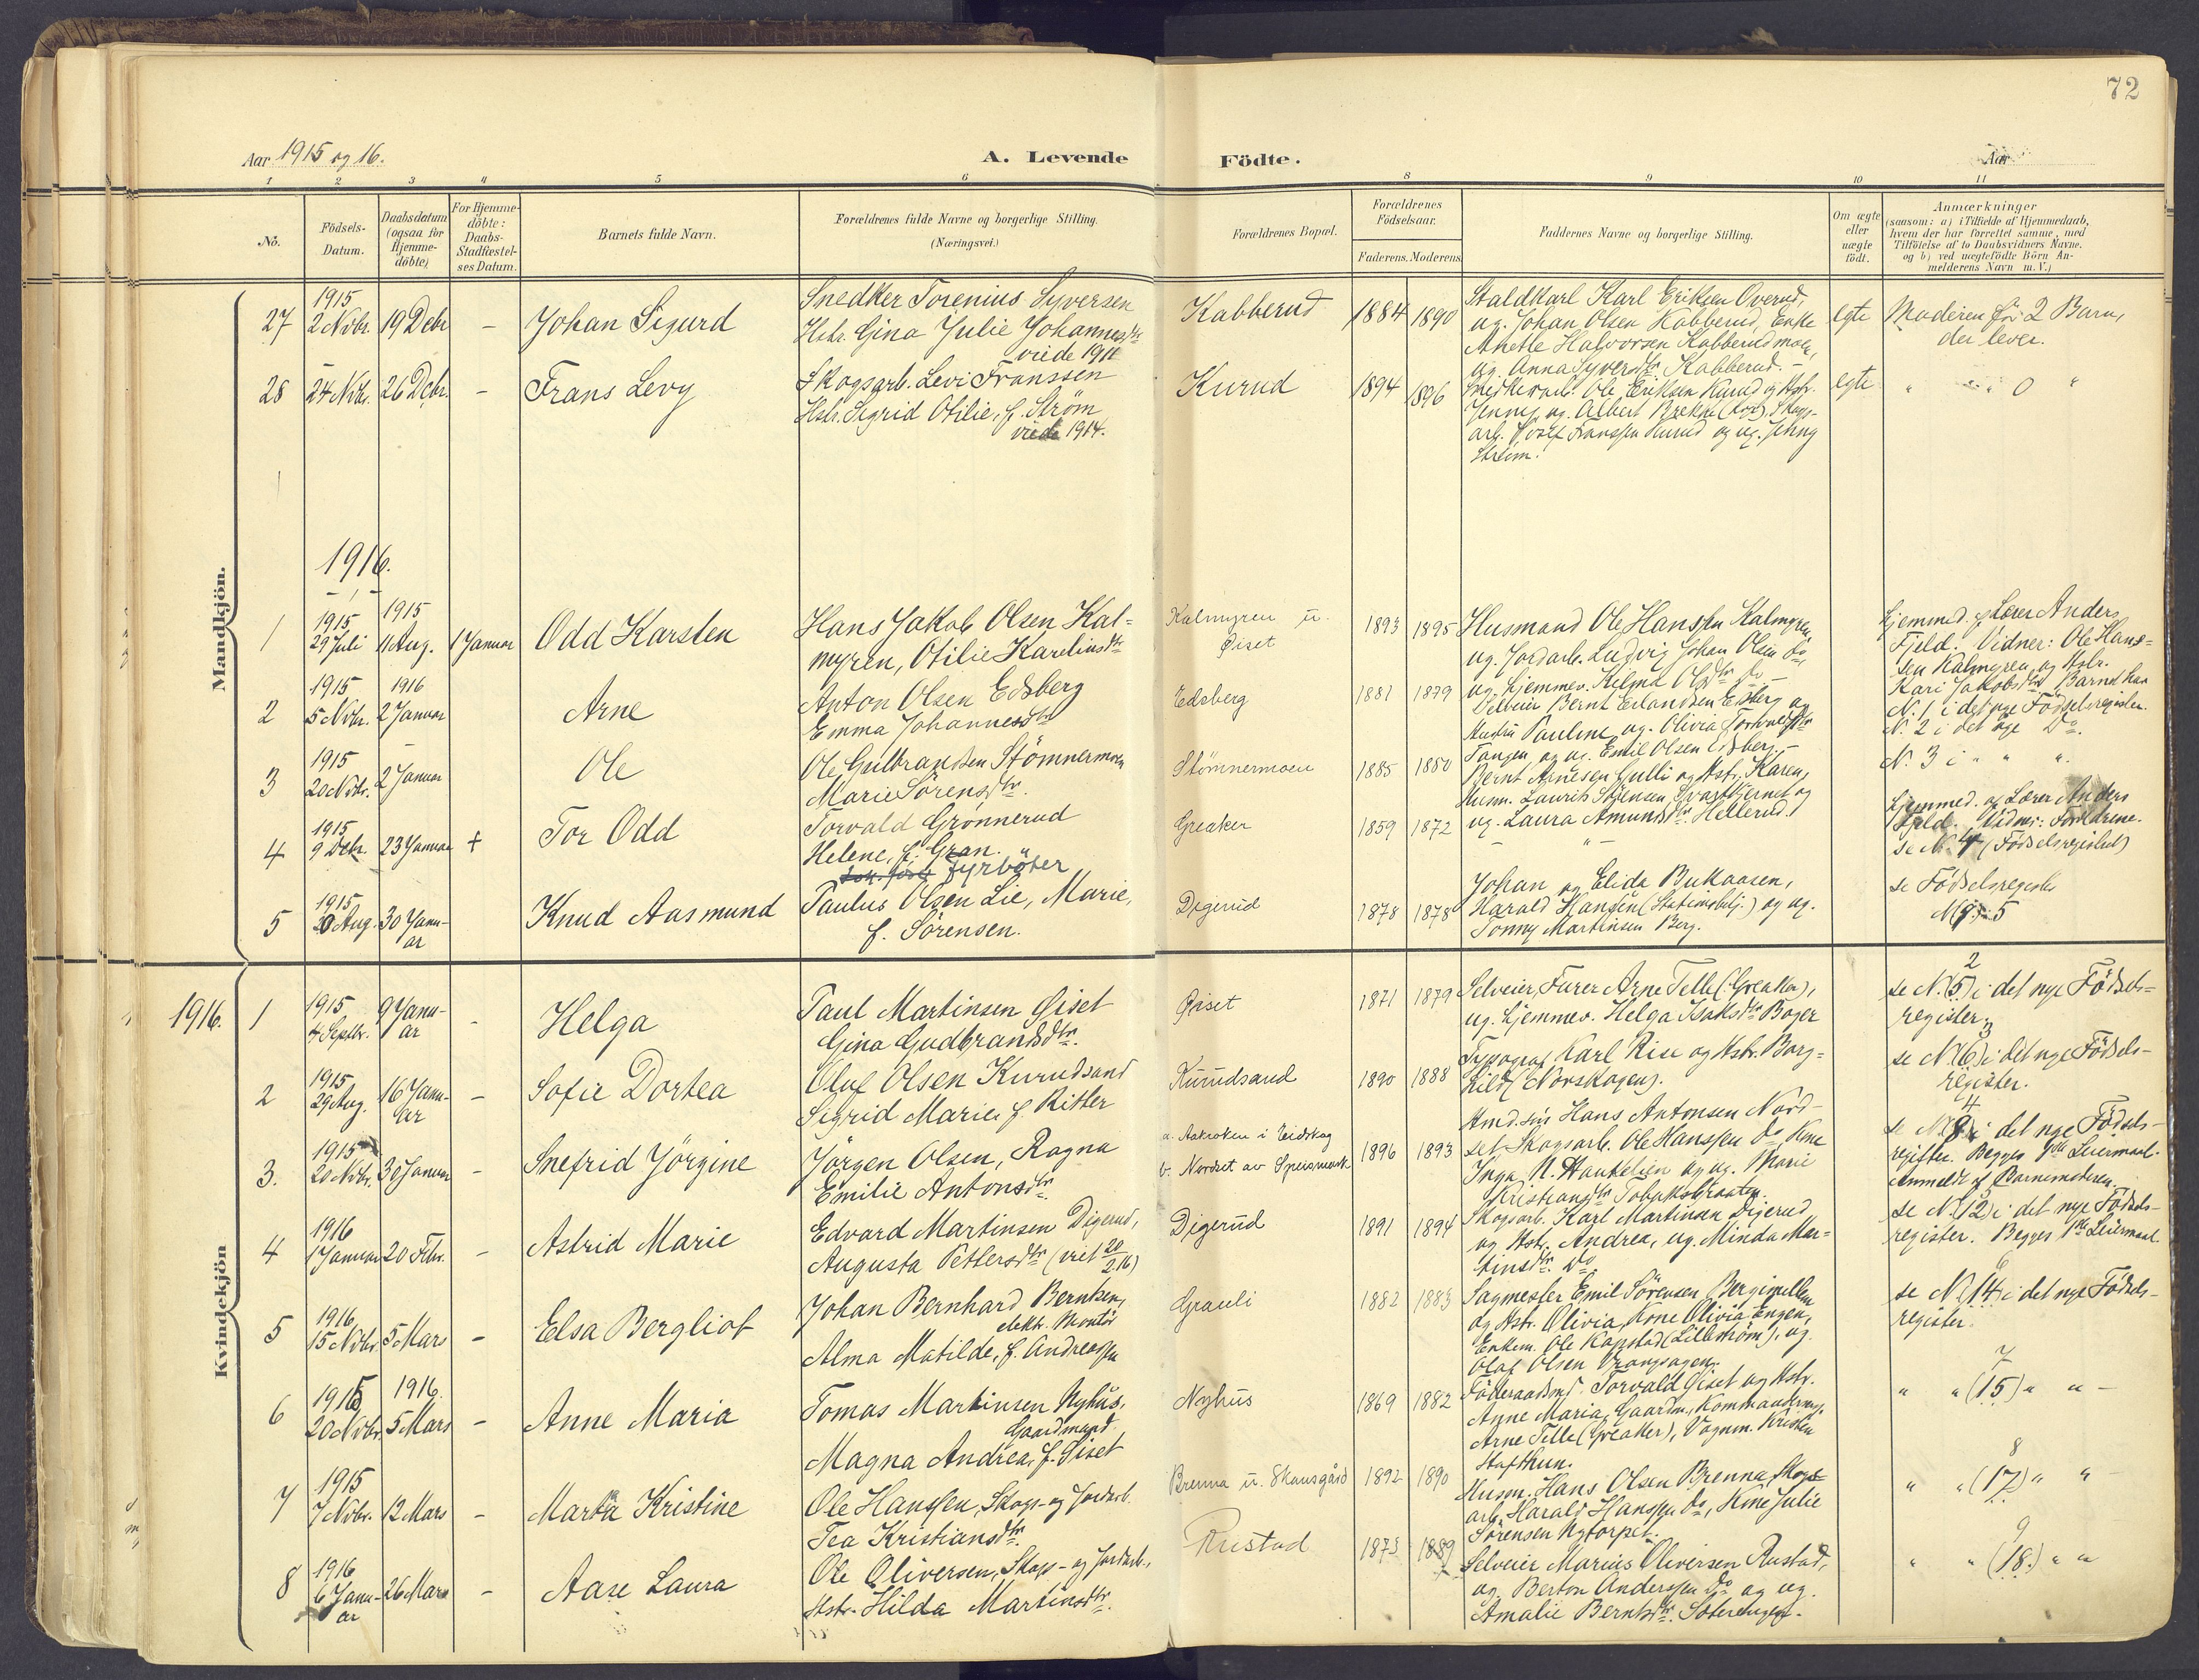 72
Aar 1915 og 16.
A. Levende Födte.
Aar
1 2 3 4 5 6 8 9 10 11
No.
Födsels-Datum.
Daabsdatum (ogsaa for Hjemme-döbte)
For Hjemme-döbte: Daabs-Stadfæstel-ses Datum.
Barnets fulde Navn.
Forældrenes fulde Navne og borgerlige Stilling.
(Næringsvei.)
Forældrenes Bopæl.
Forældrenes Födselsaar.
Faderens. Moderens
Faddernes Navne og borgerlige Stilling.
Om ægte eller uægte födt.
Anmærkninger
(saasom: a) i Tilfælde af Hjemmedaab,
hvem der har forrettet samme, med
Tilföielse af to Daabsvidners Navne.
og b) ved uægtefödte Börn An-
melderens Navn m. V.)
Mandkjön.
27 1915 2 Novbr. 19 Debr - Johan Sigurd
Snedker Torenius Syversen
Hstr. Gina Julie Johannesdtr
viede 1911
Kabberud 1884 1890
Staldkarl Karl Eriksen Overud,
ug. Johan Olsen Kabberud, Enke
Anette Halvorsen Kabberudmoen,
ug. Anna Syversdtr Kabberud. -
egte
Moderen før 2 Barn,
der lever.
28 24 Nvbr. 26 Debr. - Frans Levy
Skogsarb. Levi Franssen
Hstr. Sigrid Otilie, f. Ström
viede 1914.
Kurud 1894 1896
Snedkerarb. Ole Eriksen Kurud og Hstr.
Jenny, ug. Albert Brekke, Skogs-
arb. Josef Franssen Kurud og ug. Jenny
Ström.
egte
" " 0 "
1916.
1 1915 29 Juli 1915 11 Aug. 1 Januar Odd Karsten
Hans Jakob Olsen Kal=
myren, Otilie Kareliusdtr
Kalmyren u.
Øiset
1893 1895
Husmand Ole Hanssen Kalmyren,
ug. Jordarb. Ludvig Johan Olsen do,
ug. hjemmev. Helma Olsdtr do -
Hjemmed. af Lærer Anders
Fjeld. Vidner: Ole Hans=
sen Kalmyren og Hstr.
Kari Jakobsdtr Barnet har
N. 1 i det nye Födselsregister.
2 1915 5 Nvbr. 1916 2 Januar Arne
Anton Olsen Edsberg
Emma Johannesdtr
Edsberg 1881 1879
Selveier Bernt Erlandsen Edsberg og
Hustru Pauline, ug. Olivia Torvaldsdtr
Tangen og ug. Emil Olsen Edsberg. -
N. 2 i det nye Do.
3 1915 20 Nvbr. 2 Januar Ole
Ole Gulbrandsen Stömnermoen
Marie Sörensdtr.
Stömnermoen 1885 1880
Bernt Arnesen Gulli og Hstr. Karen,
Husm. Laurits Sörensen Svarttjernet og
ug. Laura Amundsdtr Hellerud.
N. 3 i " " ".
4 1915 9 Debr. 23 Januar + Tor Odd
Torvald Grönnerud
Helene, f. Gran.
Fyrböter
Greaker 1859 1872
- " -
Hjemmed. af Lærer Anders
Fjeld. Vidner: Forældrene.
se N. 4 (Födselsregistret)
5 1915 20 Aug. 30 Janu-ar Knud Aasmund
Paulus Olsen Lie, Marie,
f. Sörensen.
Digerud 1878 1878
Johan og Elida Bukaasen,
Harald Hansen (Stationsbetj.) og ug.
Tonny Martinsen Berg.
se Födselsregister
5
Kvindekjön
1916. 1 1915 4 Septbr. 9 Janu-ar - Helga
Paul Martinsen Øiset
Gina Gudbrandsdtr.
Øiset 1871 1879
Selveier, Furer Arne Telle (Greaker),
ug. hjemmev. Helga Isaksdtr Boger
2
se N. (5) i det nye Födsels=
register.
2 1915 29 Aug. 16 Janu-ar - Sofie Dortea
Oluf Olsen Kurudsand
Sigrid Marie, f. Ritter
Kurudsand 1890 1888
Typograf Karl Rise og Hstr. Borg=
hild (Norskogen).
3
se N. (6) i det nye Födsels-
register.
3. 1915 20 Nvbr. 30 Januar - Snefrid Jörgine
Jörgen Olsen, Ragna
Emilie Antonsdtr.
a. Aakroken i Eidskog
b. Nordset av Speismark
1896 1893
Hans Antonsen Nord-
set, Skogsarb. Ole Hanssen do, Kone
Inga N. Haukelien og ug. Marie
Kristiansdtr Tobaksbraaten.
4
se N. 8 i det nye Födsels-
register. Begges 1ste Leiermaal.
Anmeldt af Barnemoderen.
4 1916 1 Januar 20 Febr. - Astrid Marie
Edvard Martinsen Digerud,
Augusta Pettersdtr (viet 20/2.16)
Digerud 1891 1894
Skogsarb. Karl Martinsen Digerud
og Hstr. Andrea, ug. Minda Mar-
tinsdtr. Do
5
se N. (12) i det nye Födsels-
register. Begges 1ste Leiermaal.
5 1916 15 Nvbr. 5 Mars - Elsa Bergliot
Johan Bernhard Berntsen,
elektr. Montör
Alma Matilde, f. Andreassen
Grauli 1882 1883
Sagmester Emil Sörensen Bergimellem
og Hstr. Olivia, Kone Olivia Engen,
Enkem. Ole Kapstad (Lilleström), ug.
Olaf Olsen Vrangsagen.
6
se N. (14) i det nye Födsels-
register.
6 1915 20 Nvbr. 1916. 5 Mars - Anne Maria
Tomas Martinsen Nyhus,
Gaardmand.
Magna Andrea, f. Øiset
Nyhus 1869 1882
Föderaadsmd. Torvald Øiset og Hstr.
Anne Maria,
Arne Telle (Greaker),
7
" " (15) " " -
7 1915 7 Nvbr. 12 Mars - Marta Kristine
Ole Hanssen, Skogs- og Jordarb.
Tea Kristiansdtr.
Brenna u. Skansgård 1892 1890
Husm. Hans Olsen Brenna, Skogs-
arb. Harald Hanssen do, Kone Julie
Sörensen Nytorpet.
8
" " (17) " " -
8 1916 6 Janu-ar 26 Mars - Aase Laura
Ole Oliversen, Skogs- og Jordarb.,
Hstr. Hilda Martinsdtr.
Rustad 1873 1889
Selveier Marius Oliversen Rustad,
ug. Berton Anderssen do og ug.
Amalie Berntsdtr.
9
" " (18) " "